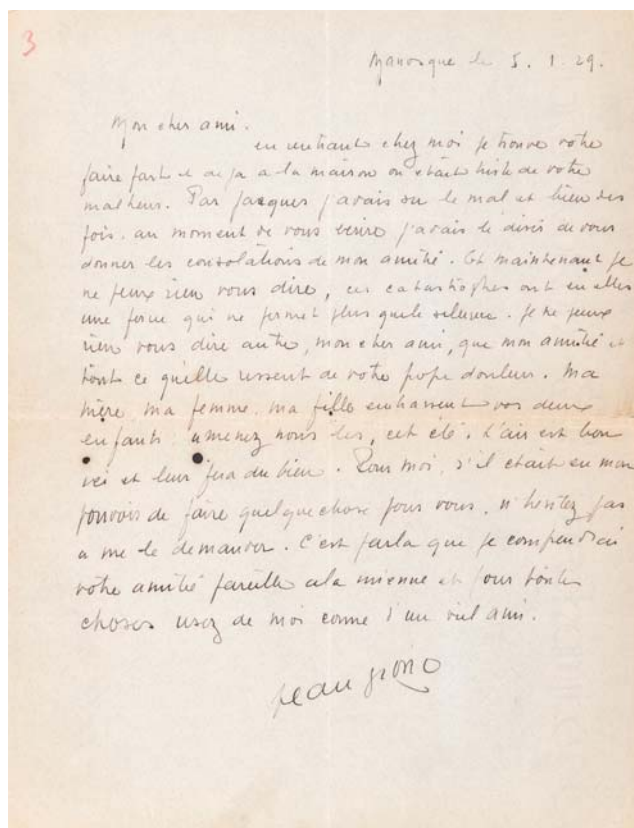 3
Manosque le 5. 1. 29.
Mon cher ami.
en rentrant chez moi je trouve votre
faire part et deja a la maison on etait triste de votre
malheur. Par Jacques j'avais su le mal et bien des
fois. au moment de vous ecrire j'avais le désir de vous
donner les consolations de mon amitié. Et maintenant je
ne peux rien vous dire, ces catastrophes ont en elles
une force qui ne permet plus que le silence. Je ne peux
rien vous dire autre, mon cher ami, que mon amitié et
tout ce qu'elle ressent de votre propre douleur. Ma
mère, ma femme, ma fille embrassent vos deux
enfants. amenez nous les, cet été. L'air est bon
ici et leur fera du bien. Pour moi, s'il etait en mon
pouvoir de faire quelque chose pour vous, n'hesitez pas
a me le demander. C'est par la que je comprendrai
votre amitié pareille a la mienne et pour toutes
choses usez de moi comme d'un vieil ami.
Jean Giono